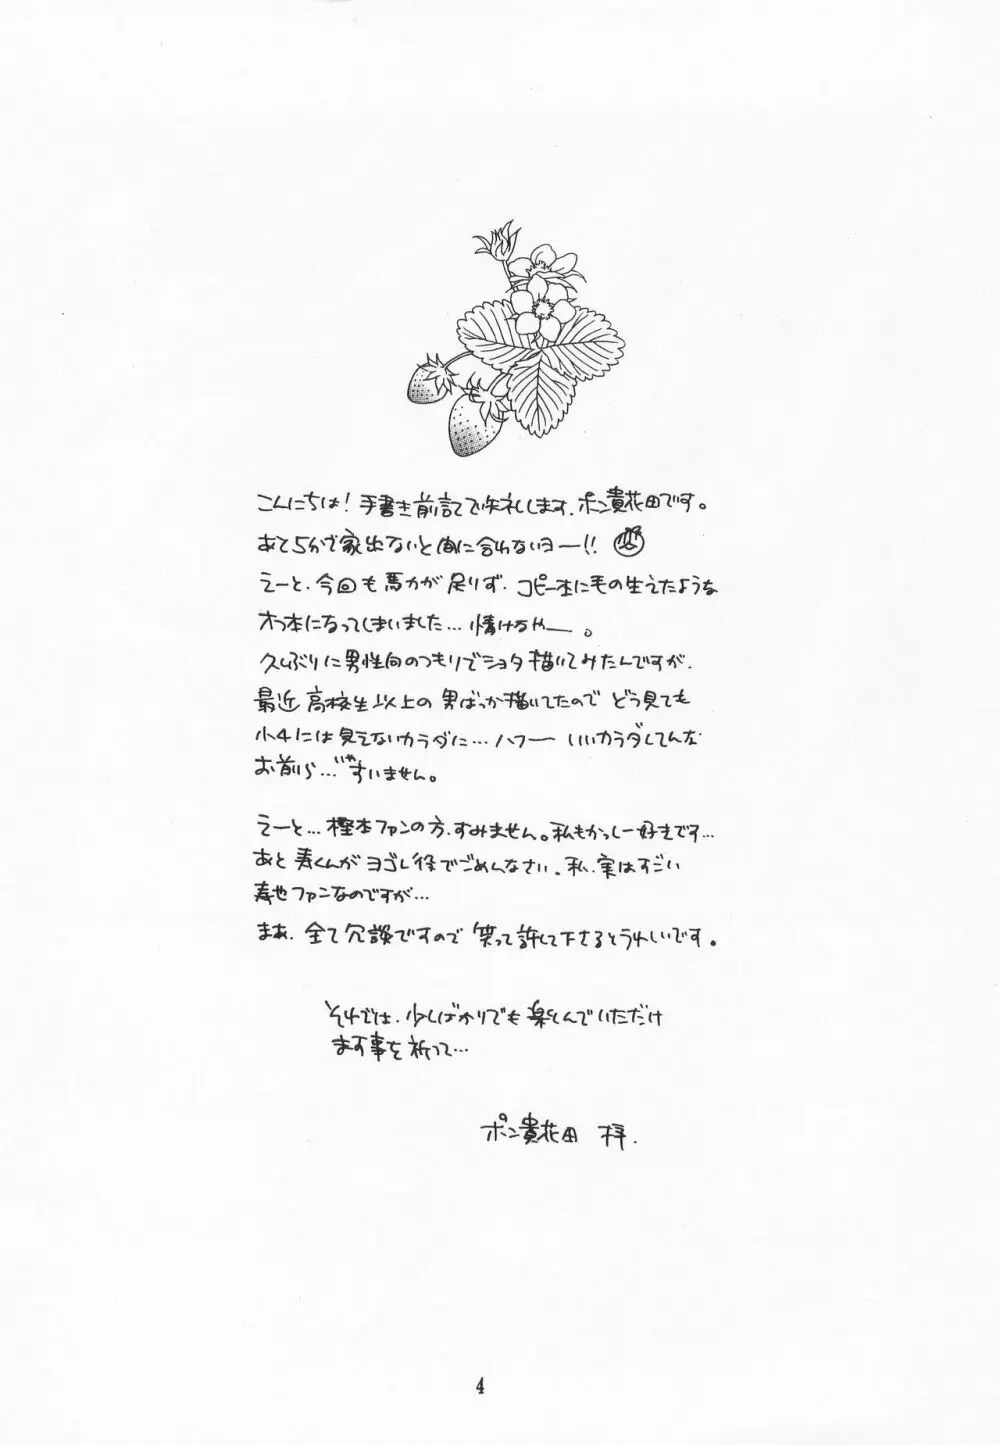 こんにちは！手書き前記で失礼します、ポン貴花田です。
あと5分で家出ないと間に合わないヨー!!
えーと、今回も馬力が足りず、コピー本に毛の生えたような
オフ本になってしまいました…情けなやー。
久しぶりに男性向のつもりでショタ描いてみたんですが、
最近高校生以上の男ばっか描いてたのでどう見ても
小4には見えないカラダに…ハフー いいカラダしてんな
お前ら…いやすいません。
えーと…樫本ファンの方、すみません。私もかっしー好きです…
あと寿くんがヨゴレ役でごめんなさい。私、実はすごい
寿也ファンなのですが…
まあ、全て冗談ですので笑って許して下さるとうれしいです。
それでは、少しばかりでも楽しんでいただけ
ます事を祈って…
ポン貴花田 拝.
4